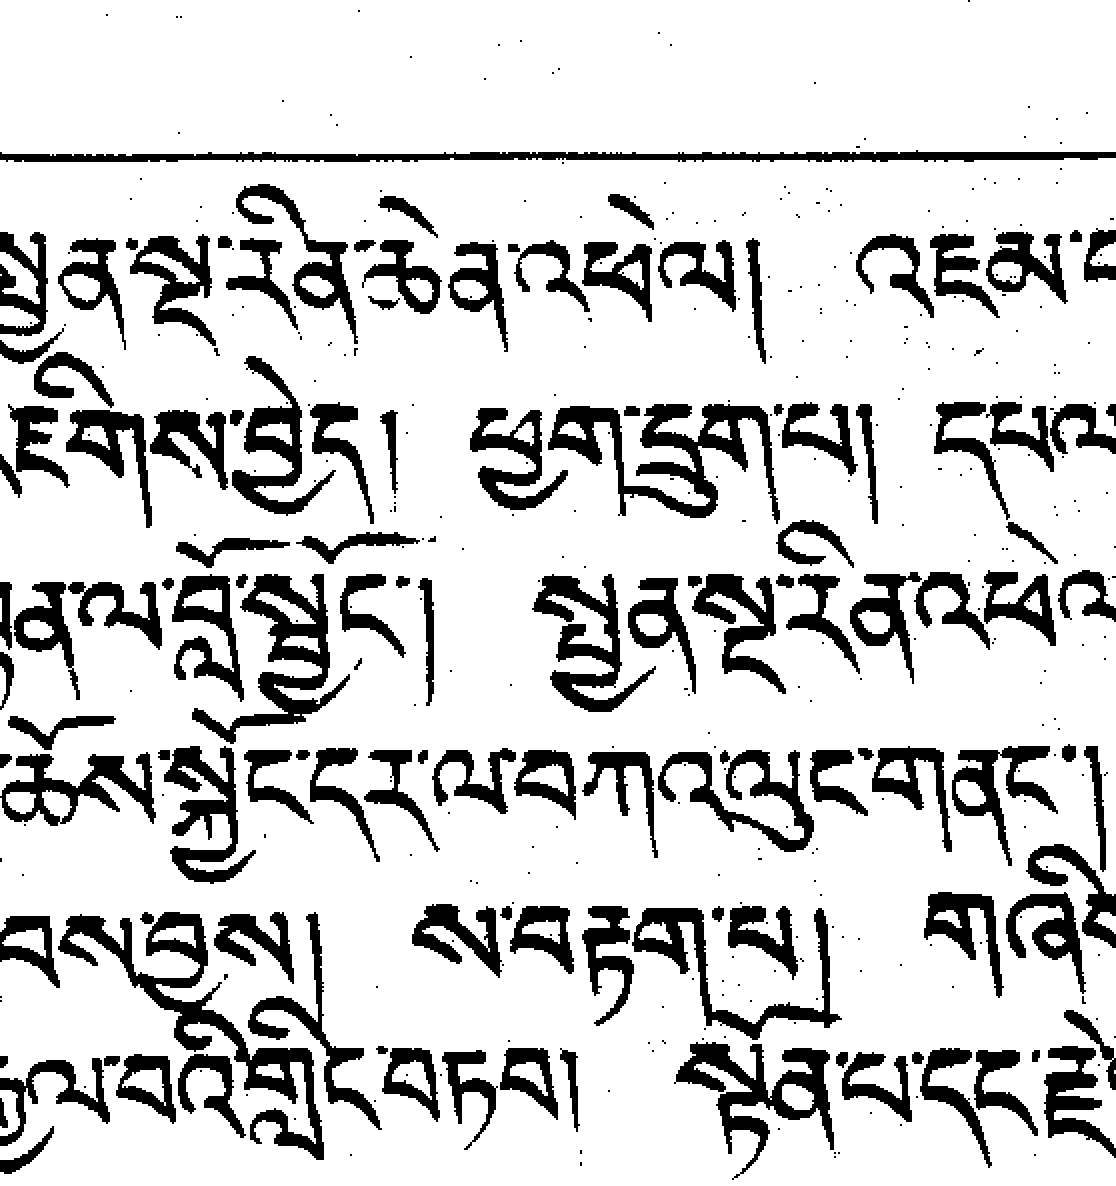 སྤྱན་སྔ་རིན་ཆེན་འཕེལ། འཇམ་
འཇིགས་བྱེད། ཕྱག་དྲུག་པ། དཔལ་
ལ་བློ་སྦྱོང་། སྤྱན་སྔ་རིན་འཕེལ་
ཆོས་སྐྱོང་དར་ལ་བཀའ་ལུང་གནང་།
བས་བྱས། ས་བརྟག་པ། གཞི
རྒྱལ་བའི་གླིང་བཏབ། སྟོན་པ་དང་རྗེ